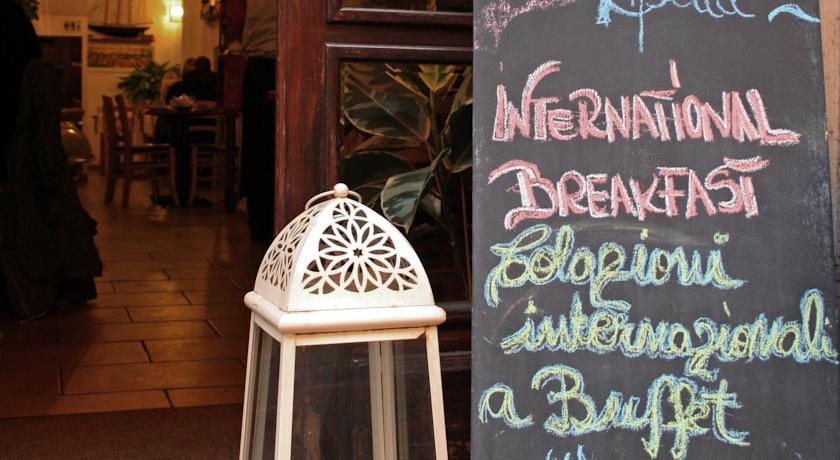 INTERNATIONAL
BREAKFAST
Colazioni
internazionali
a Buffet